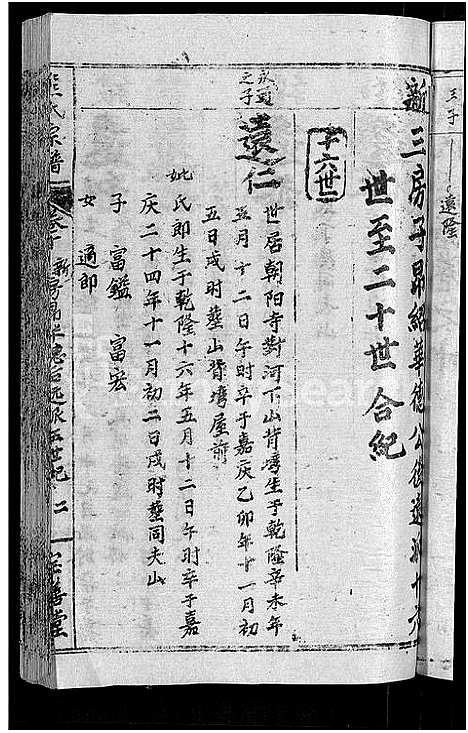 三子
遠隆
新三房子昴紹華德公後遠派十六
世至二十世合紀
十六世
永題之子
遠仁
世居朝阳寺對河下山背塆生于乾隆辛未年
五月十二日午时卒于嘉庆乙卯年十一月初
五日戌时塟山背塆屋前
妣氏郎生于乾隆十六年五月十二日午时卒于嘉
庆二十四年十一月初二日戌时塟同夫山
子 富鎰 富宏
女 適郎
氏宗譜
新房昴华德后远派五世紀
二
善堂